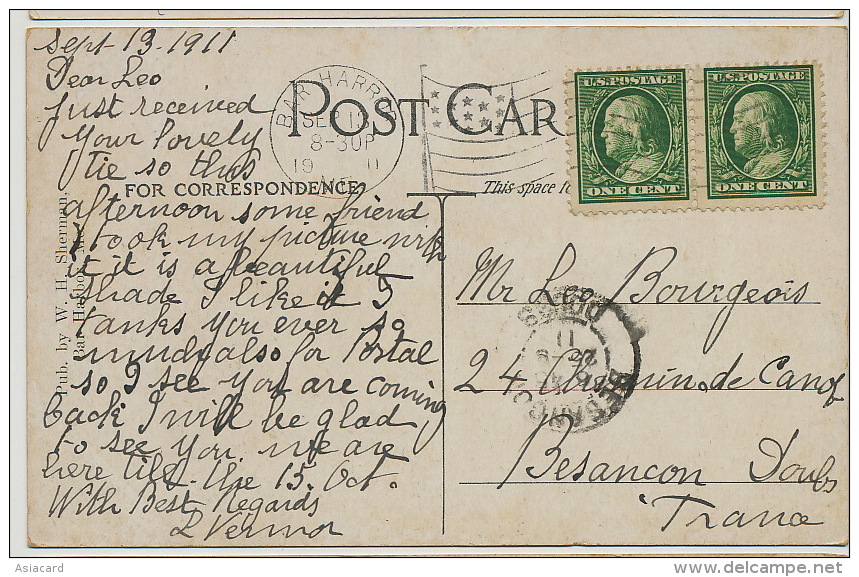 Sept-13-1911
Dear Leo
just received
your lovely
tie so this
afternoon some friend
took my picture with
it it is a beautiful
shade I like it I
tanks you ever so
much also for Postal
so I see you are coming
back I will be glad
to see you. we are
here till the 15. Oct.
With Best Regards
L Vernor
POST CAR
FOR CORRESPONDENCE
This space fo
Pub. by W. H. Sherman,
Bar Harbor, Me.
BAR HARBOR
SEP
8-30P
19 11
ME.
U.S. POSTAGE
ONE CENT
U.S. POSTAGE
ONE CENT
Mr Leo Bourgeois
24 Chemin de Canot
Besancon Doubs
France
BESANCON
DOUBS
11
Asiacard
www.delcampe.net